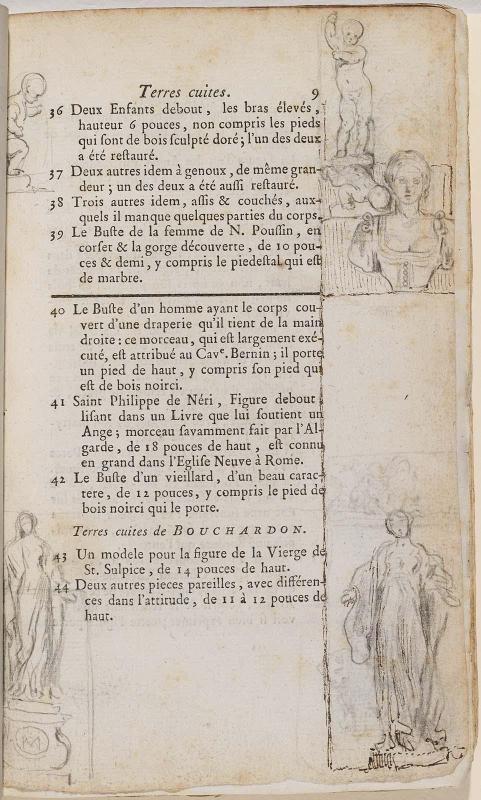 Terres cuites. 9
36 Deux Enfants debout, les bras élevés,
hauteur 6 pouces, non compris les pieds
qui ſont de bois sculpté doré; l'un des deux
a été reſtauré.
37 Deux autres idem à genoux, de même gran-
deur; un des deux a été auſſi reſtauré.
38 Trois autres idem, aſſis & couchés, aux-
quels il manque quelques parties du corps.
39 Le Buſte de la femme de N. Pouſſin, en
corſet & la gorge découverte, de 10 pou-
ces & demi, y compris le piedeſtal qui eſt
de marbre.
40 Le Buſte d'un homme ayant le corps cou-
vert d'une draperie qu'il tient de la main
droite: ce morceau, qui eſt largement exé-
cuté, eſt attribué au Cavᵉ. Bernin; il porte
un pied de haut, y compris ſon pied qui
eſt de bois noirci.
41 Saint Philippe de Néri, Figure debout
liſant dans un Livre que lui ſoutient un
Ange; morceau ſavamment fait par l'Al-
garde, de 18 pouces de haut, eſt connu
en grand dans l'Egliſe Neuve à Rome.
42 Le Buſte d'un vieillard, d'un beau carac-
tere, de 12 pouces, y compris le pied de
bois noirci qui le porte.
Terres cuites de BOUCHARDON.
43 Un modele pour la figure de la Vierge de
St. Sulpice, de 14 pouces de haut.
44 Deux autres pieces pareilles, avec différen-
ces dans l'attitude, de 11 à 12 pouces de
haut.